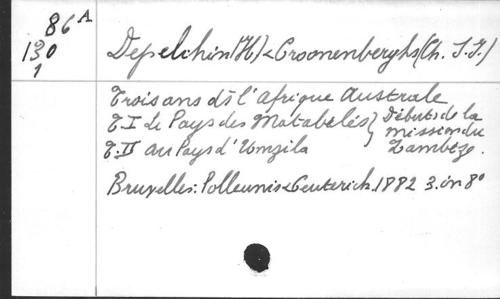 86 A
130
1
Depelchin (H) & Croonenberghs (Ch. S.J.)
Trois ans ds l'afrique Australe
T. I Le Pays des Matabélés } Débuts de la
mission du
T. II au Pays d'Umzila Zambèze.
Bruxelles: Polleunis & Ceuterich. 1882 3. in 8°